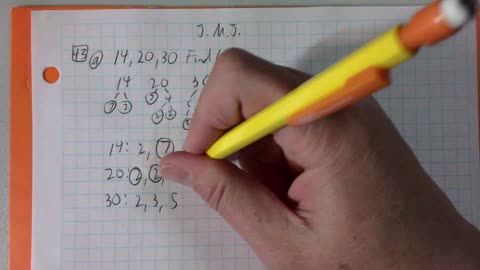 J.M.J.
43 a 14, 20, 30 Find
14 20 30
7 2
14: 2, 7
20: 2, 2,
30: 2, 3, 5